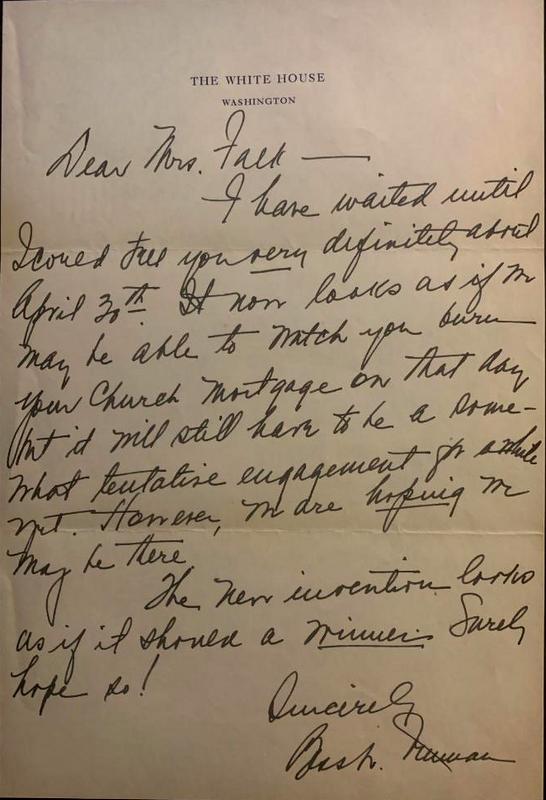 THE WHITE HOUSE
WASHINGTON
Dear Mrs. Falk —
I have waited until
I could tell you very definitely about
April 30th. It now looks as if we
may be able to watch you burn
your Church mortgage on that day
but it will still have to be a some-
what tentative engagement for awhile
yet. However, we are hoping we
may be there.
The new invention looks
as if it should a winner. Surely
hope so!
Sincerely
Bess W. Truman